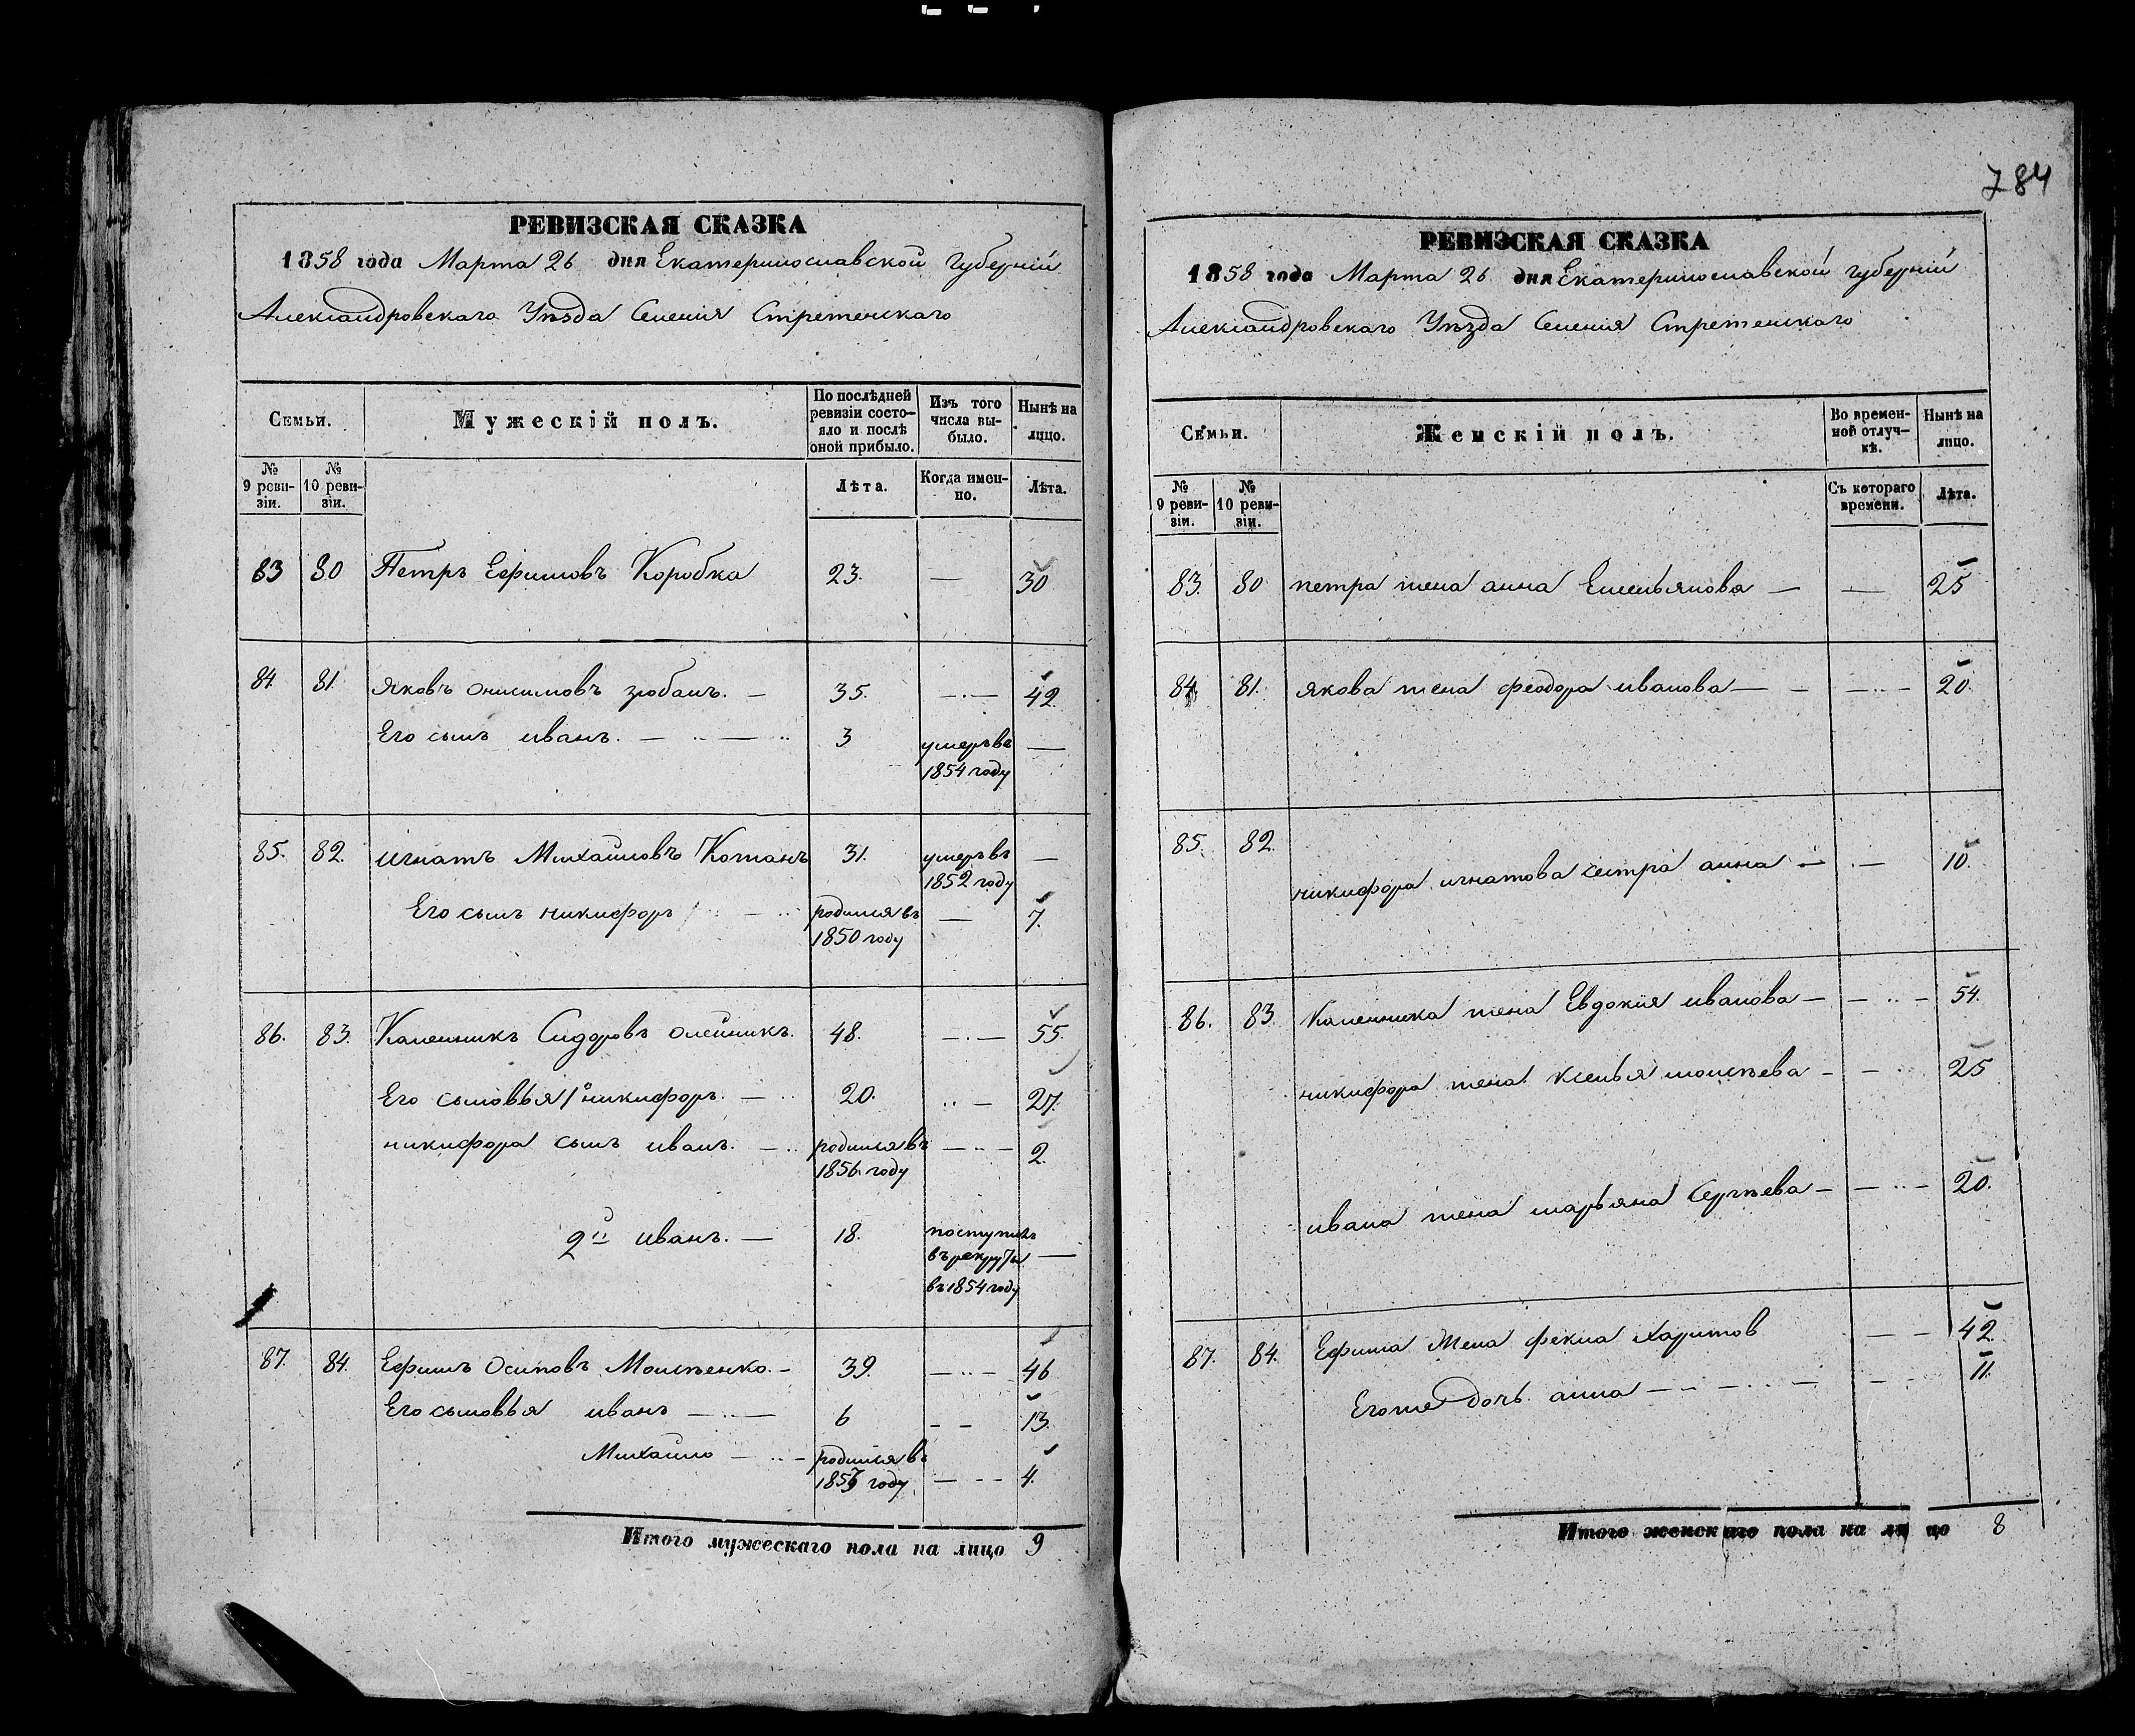 784
РЕВИЗСКАЯ СКАЗКА
1858 года Марта 26 дня Екатеринославской губерніи
Александровскаго Уѣзда Селенія Стретенскаго
Семьи.
Мужескій полъ.
По послѣдней ревизіи состояло и послѣ оной прибыло.
Изъ того числа выбыло.
Нынѣ на лицо.
№ 9 ревизіи.
№ 10 ревизіи.
Лѣта.
Когда именно.
Лѣта.
83 80 Петръ Ефимовъ Коробка 23. — 30
84. 81. Яковъ онисимовъ зюбанъ. — 35. — 42.
Его сынъ иванъ. — 3 умеръ въ 1854 году —
85. 82. игнатъ Михайловъ 31. умеръ въ 1852 году —
Его сынъ никифоръ родился въ 1850 году — 7.
86. 83. Каленикъ Сидоровъ олейникъ. 48. — 55.
Его сыновья 1й никифоръ. — 20. — 27.
никифора сынъ иванъ. — родился въ 1856 году — 2.
2й иванъ. — 18. поступилъ въ рекруты въ 1854 году —
87. 84. Ефимъ Осиповъ Моисѣенко. — 39. — 46
Его сыновья иванъ — 6 — 13.
Михайло — родился въ году — 4.
Итого мужескаго пола на лицо 9
РЕВИЗСКАЯ СКАЗКА
1858 года Марта 26 дня Екатеринославской губерніи
Александровскаго Уѣзда Селенія Стретенскаго
Семьи.
Женскій полъ.
Во временной отлучкѣ.
Нынѣ на лицо.
№ 9 ревизіи.
№ 10 ревизіи.
Съ котораго времени.
Лѣта.
83. 80 петра жена анна Емельянова — — 25
84. 81. якова жена феодора иванова — — 20.
85. 82.
никифора игнатова сестра анна — — 10.
86. 83. Каленника жена Евдокія иванова — — 54.
никифора жена ксенья моисѣева — — 25
ивана жена марьяна Сергѣева — — 20.
87. 84. Ефима Жена фекла Харитов — 42.
Егоже дочь анна — — 11.
Итого женскаго пола на лицо 8